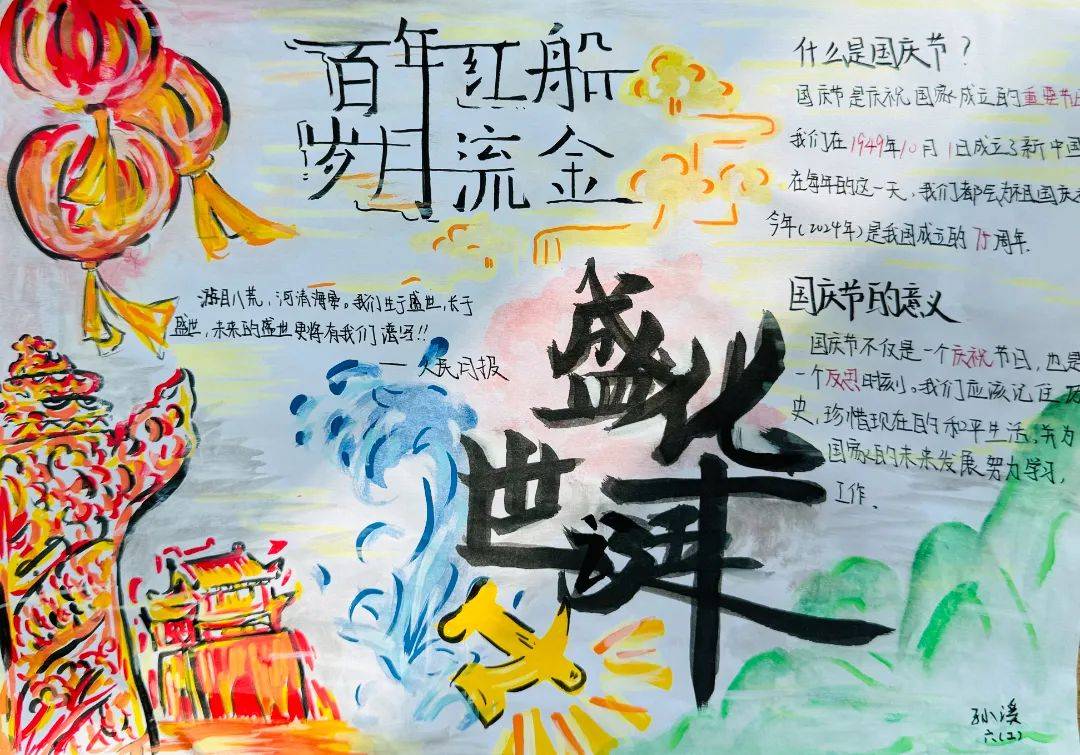 百年红船
岁月流金
什么是国庆节？
国庆节是庆祝国家成立的重要节日
我们在1949年10月1日成立了新中国
在每年的这一天，我们都会为祖国庆
今年(2024年)是我国成立的75周年.
游目八荒，河清海晏。我们生于盛世，长于
盛世，未来的盛世更将有我们谱写!!
——人民日报
盛世华诞
国庆节的意义
国庆节不仅是一个庆祝节日，也是
一个反思时刻。我们应该记住历
史，珍惜现在的和平生活，并为
国家的未来发展努力学习，
工作.
孙溪
六(2)